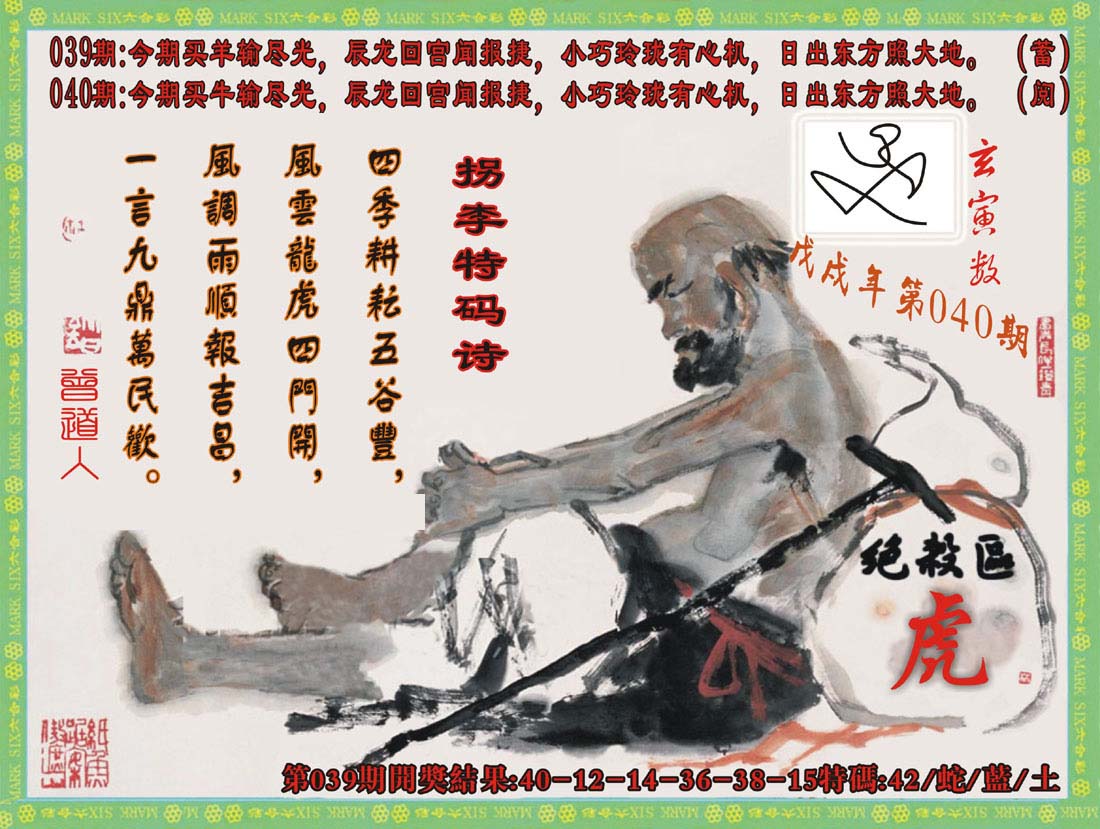 MARK SIX六合彩
039期:今期买羊输尽光，辰龙回宫闻报捷，小巧玲珑有心机，日出东方照大地。（蓄）
040期:今期买牛输尽光，辰龙回宫闻报捷，小巧玲珑有心机，日出东方照大地。（阅）
玄寅数
戊戌年第040期
拐李特码诗
四季耕耘五谷豐，
風雲龍虎四門開，
風調雨順報吉昌，
一言九鼎萬民歡。
曾道人
绝殺區
虎
第039期開獎結果:40-12-14-36-38-15特碼:42/蛇/藍/土